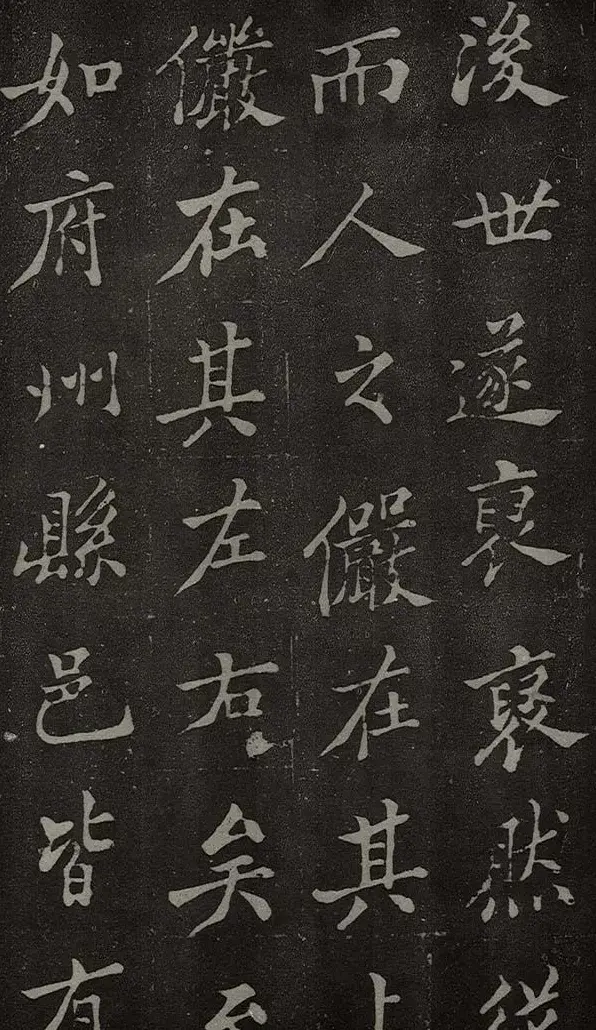 後世遂然從
而人之儼在其上
儼在其左右矣至
如府州縣邑皆有